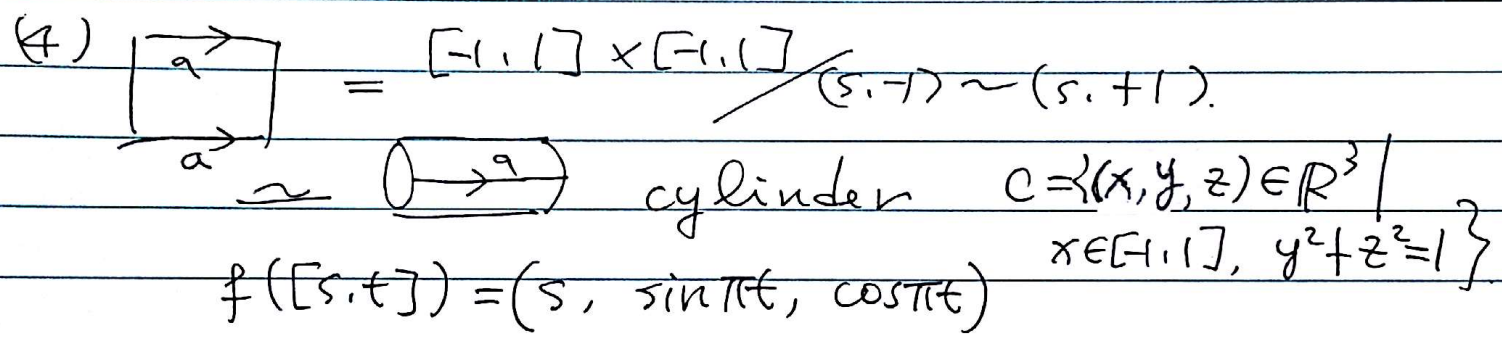 (4) a a = [-1,1] × [-1,1] / (s,-1) ~ (s,+1).
≃ a cylinder C={(x,y,z)∈ℝ³|
x∈[-1,1], y²+z²=1}
f([s,t])=(s, sinπt, cosπt)